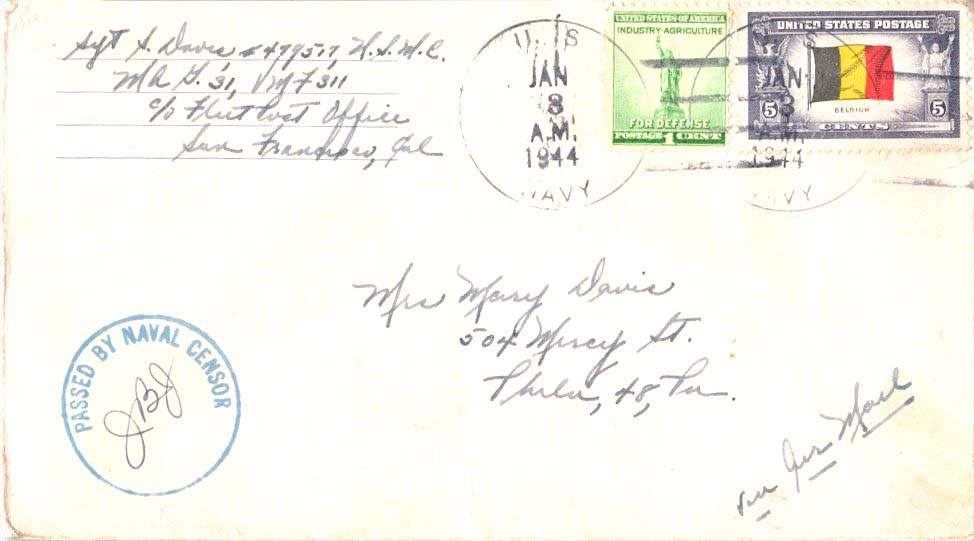 Sgt S. Davis #479577 U.S.M.C.
MA G. 31, VMF 311
c/o Fleet Post Office
San Francisco, Cal
U. S.
JAN
3
A.M.
1944
NAVY
UNITED STATES OF AMERICA
INDUSTRY·AGRICULTURE
FOR DEFENSE
POSTAGE 1 CENT
UNITED STATES POSTAGE
BELGIUM
5 5
CENTS
U. S.
JAN
3
A.M.
1944
NAVY
Mrs Mary Davis
504 Mercy St.
Phila, 48, Pa.
PASSED BY NAVAL CENSOR
JBJ
via Air Mail